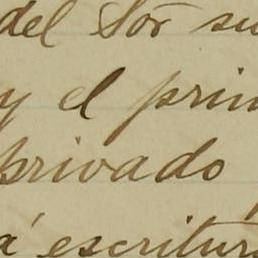 del Sor su
y el prin
privado
á escritur